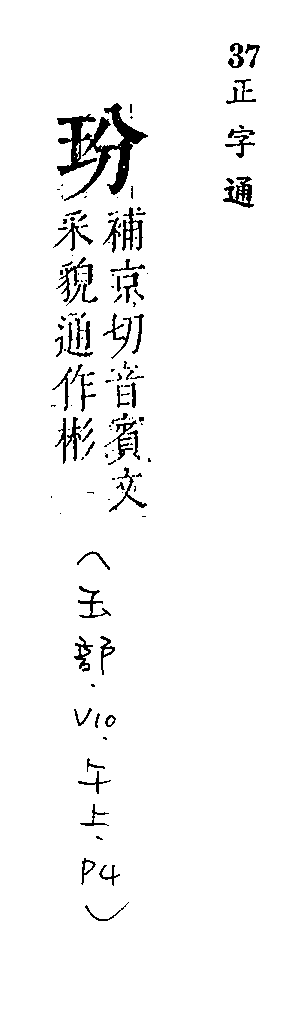 37正字通
玢
補京切音賓文
采貌通作彬
（玉部．V10．午上．P4）